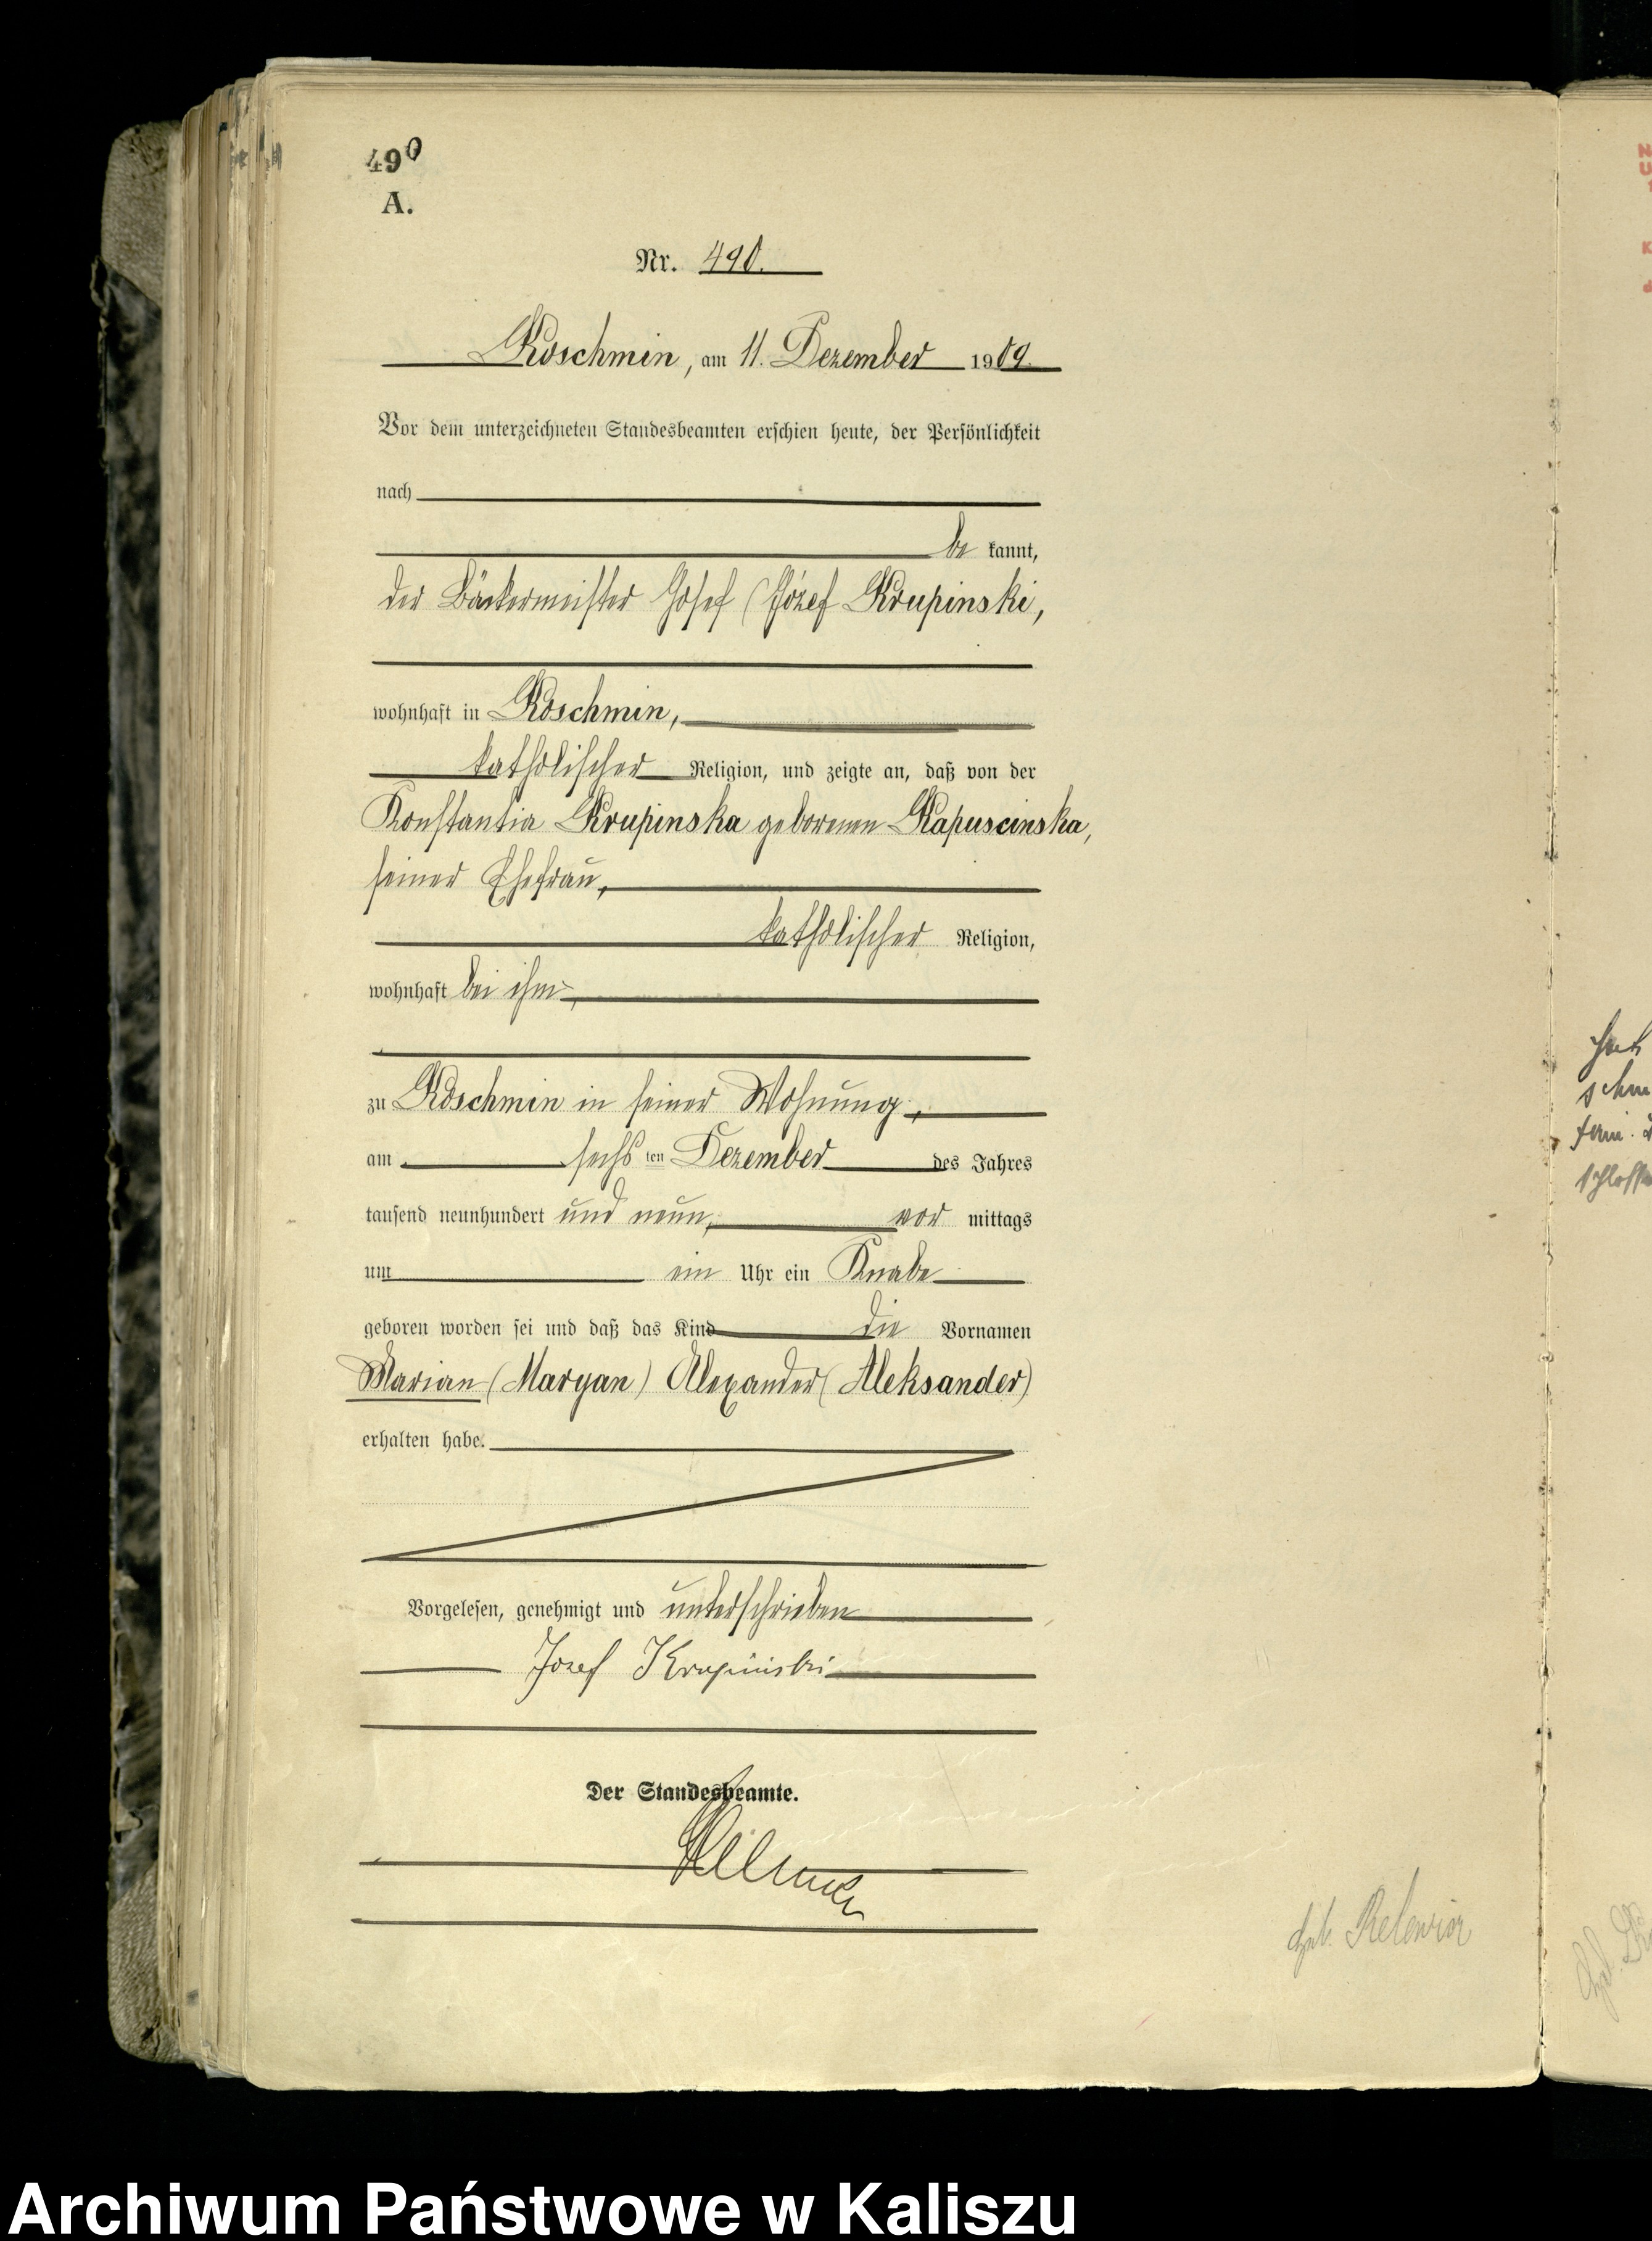 490
A.
Nr. 490.
Koschmin, am 11. Dezember 1909.
Vor dem unterzeichneten Standesbeamten erschien heute, der Persönlichkeit
nach
be kannt,
der Bäckermeister Josef (Józef Krupinski,
wohnhaft in Koschmin,
katholischer Religion, und zeigte an, daß von der
Konstantia Krupinska geborenen Kapuscinska,
seiner Ehefrau,
katholischer Religion,
wohnhaft bei ihm,
zu Koschmin in seiner Wohnung,
am sechs ten Dezember des Jahres
tausend neunhundert und neun, vor mittags
um ein Uhr ein Knabe
geboren worden sei und daß das Kind die Vornamen
Marian (Maryan) Alexander (Aleksander)
erhalten habe.
Vorgelesen, genehmigt und unterschrieben
Józef Krupiński
Der Standesbeamte.
Archiwum Państwowe w Kaliszu